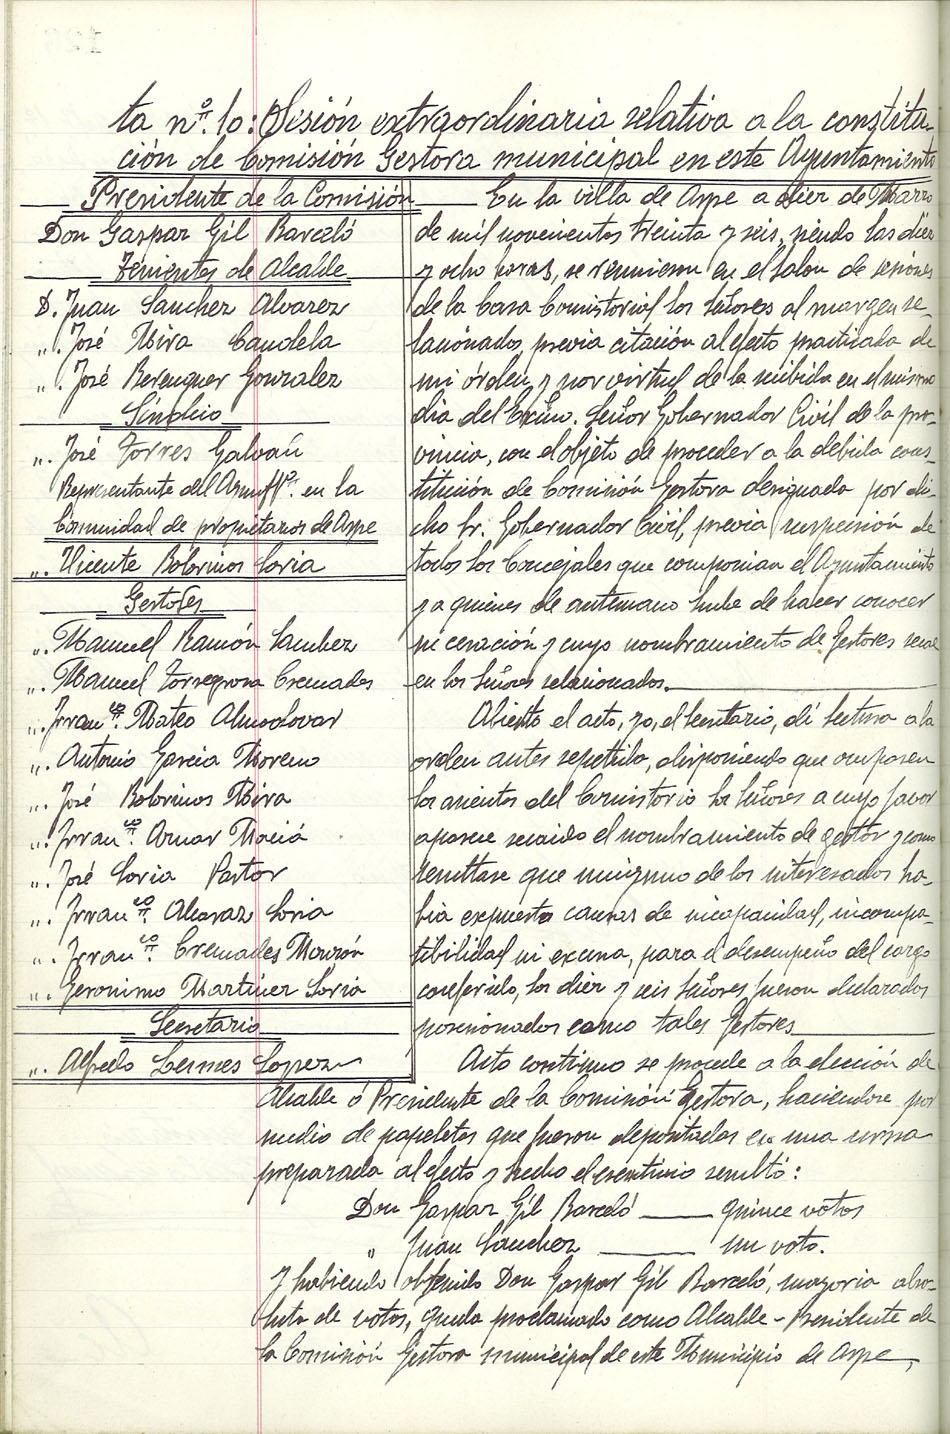 ta nº. 10: Sesión extraordinaria relativa a la constitu-
ción de Comisión Gestora municipal en este Ayuntamiento
Presidente de la Comisión
Don Gaspar Gil Barceló
Tenientes de Alcalde
D. Juan Sanchez Alvarez
„. José Mira Candela
„. José Berenguer Gonzalez
Síndico
„. José Torres Galvañ
Representante del Ayuntº. en la
Comunidad de propietarios de Aspe
„. Vicente Bobrinos Soria
Gestores
„. Manuel Ramón Sanchez
„. Manuel Torregrosa Cremades
„. Francº. Mateo Almodovar
„. Antonio Garcia Moreno
„. José Bobrinos Mira
„. Francº. Aznar Maciá
„. José Soria Pastor
„. Francº. Alcaraz Soria
„. Francº. Cremades Monzón
„. Geronimo Martinez Soria
Secretario
„. Alfredo Lopez
En la villa de Aspe a diez de Marzo
de mil novecientos treinta y seis, siendo las diez
y ocho horas, se reunieron en el salon de sesiones
de la Casa Consistorial los señores al margen re-
lacionados, previa citación al efecto practicada de
mi órden, y por virtud de la recibida en el mismo
dia del Excmo. Señor Gobernador Civil de la pro-
vincia, con el objeto de proceder a la debida cons-
titución de Comisión Gestora designada por di-
cho Sr. Gobernador Civil, previa suspensión de
todos los Concejales que componian el Ayuntamiento
y a quienes de antemano hube de hacer conocer
su cesación y cuyo nombramiento de Gestores recae
en los señores relacionados.
Abierto el acto, yo, el Secretario, dí lectura a la
orden antes repetida, disponiendo que ocuparen
los asientos del Consistorio los señores a cuyo favor
aparece recaido el nombramiento de gestor y como
resultase que ninguno de los interesados ha-
bia expuesto causas de incapacidad, incompa-
tibilidad ni excusa, para el desempeño del cargo
conferido, los diez y seis señores fueron declarados
posesionados como tales Gestores
Acto continuo se procede a la elección de
Alcalde ó Presidente de la Comisión Gestora, haciendose por
medio de papeletas que fueron depositadas en una urna
preparada al efecto y hecho el escrutinio resultó:
Don Gaspar Gil Barceló quince votos
„ Juan Sanchez un voto.
Y habiendo obtenido Don Gaspar Gil Barceló, mayoria abso-
luta de votos, queda proclamado como Alcalde-Presidente de
la Comisión Gestora municipal de este Municipio de Aspe,